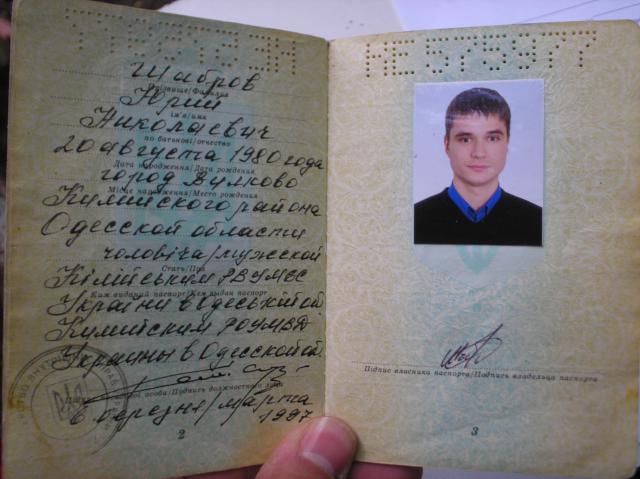 Шабров
Прізвище/Фамилия
Юрий
ім'я/имя
Николаевич
по батькові/отчество
20 августа 1980 года
Дата народження/Дата рождения
город Вилково
Місце народження/Место рождения
Килийского района
Одесской области
чоловіча/мужской
Стать/Пол
Кілійським РВ УМВС
Ким виданий паспорт/Кем выдан паспорт
України в Одеській обл
Килийским РОУМВД
Украины в Одесской об
особи/Подпись должностного лица
6 березня/марта
1997
2
Підпис власника паспорта/Подпись владельца паспорта
3